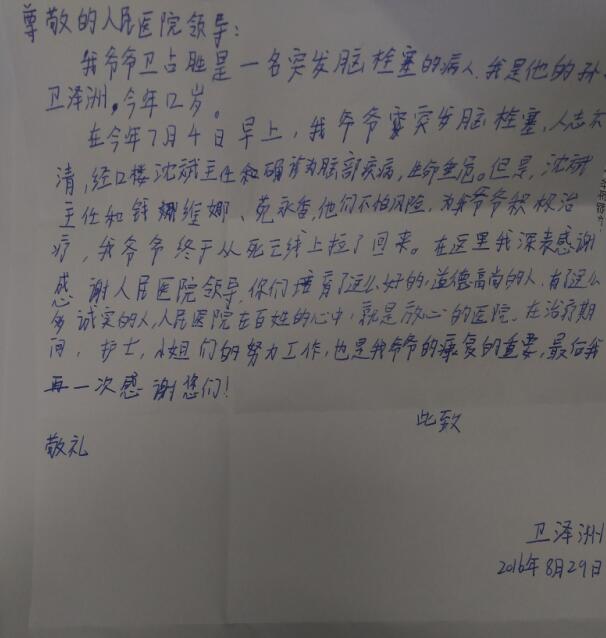 尊敬的人民医院领导:
我爷爷卫占胜是一名突发脑栓塞的病人,我是他的孙
卫泽洲,今年12岁。
在今年7月4日早上,我爷爷突发脑栓塞,人志不
清,经口楼沈斌主任和确诊为脑部疾病,生命垂危。但是,沈斌
主任和钱娜维娜、苑永香,他们不怕风险,为我爷爷积极治
疗,我爷爷终于从死亡线上拉了回来。在这里我深表感谢
感谢人民医院领导,你们培育了这么好的,道德高尚的人,有了这么
多诚实的人,人民医院在百姓的心中,就是放心的医院。在治疗期
间,护士,小姐们的努力工作,也是我爷爷的康复的重要,最后我
再一次感谢您们!
此致
敬礼
卫泽洲
2016年8月29日